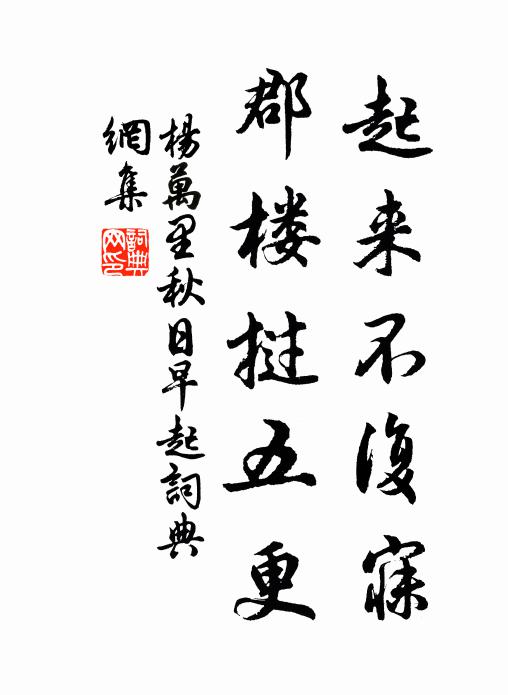 起来不復寐
郡楼撾五更
楊萬里秋日早起詞典
網集
詞典
网印